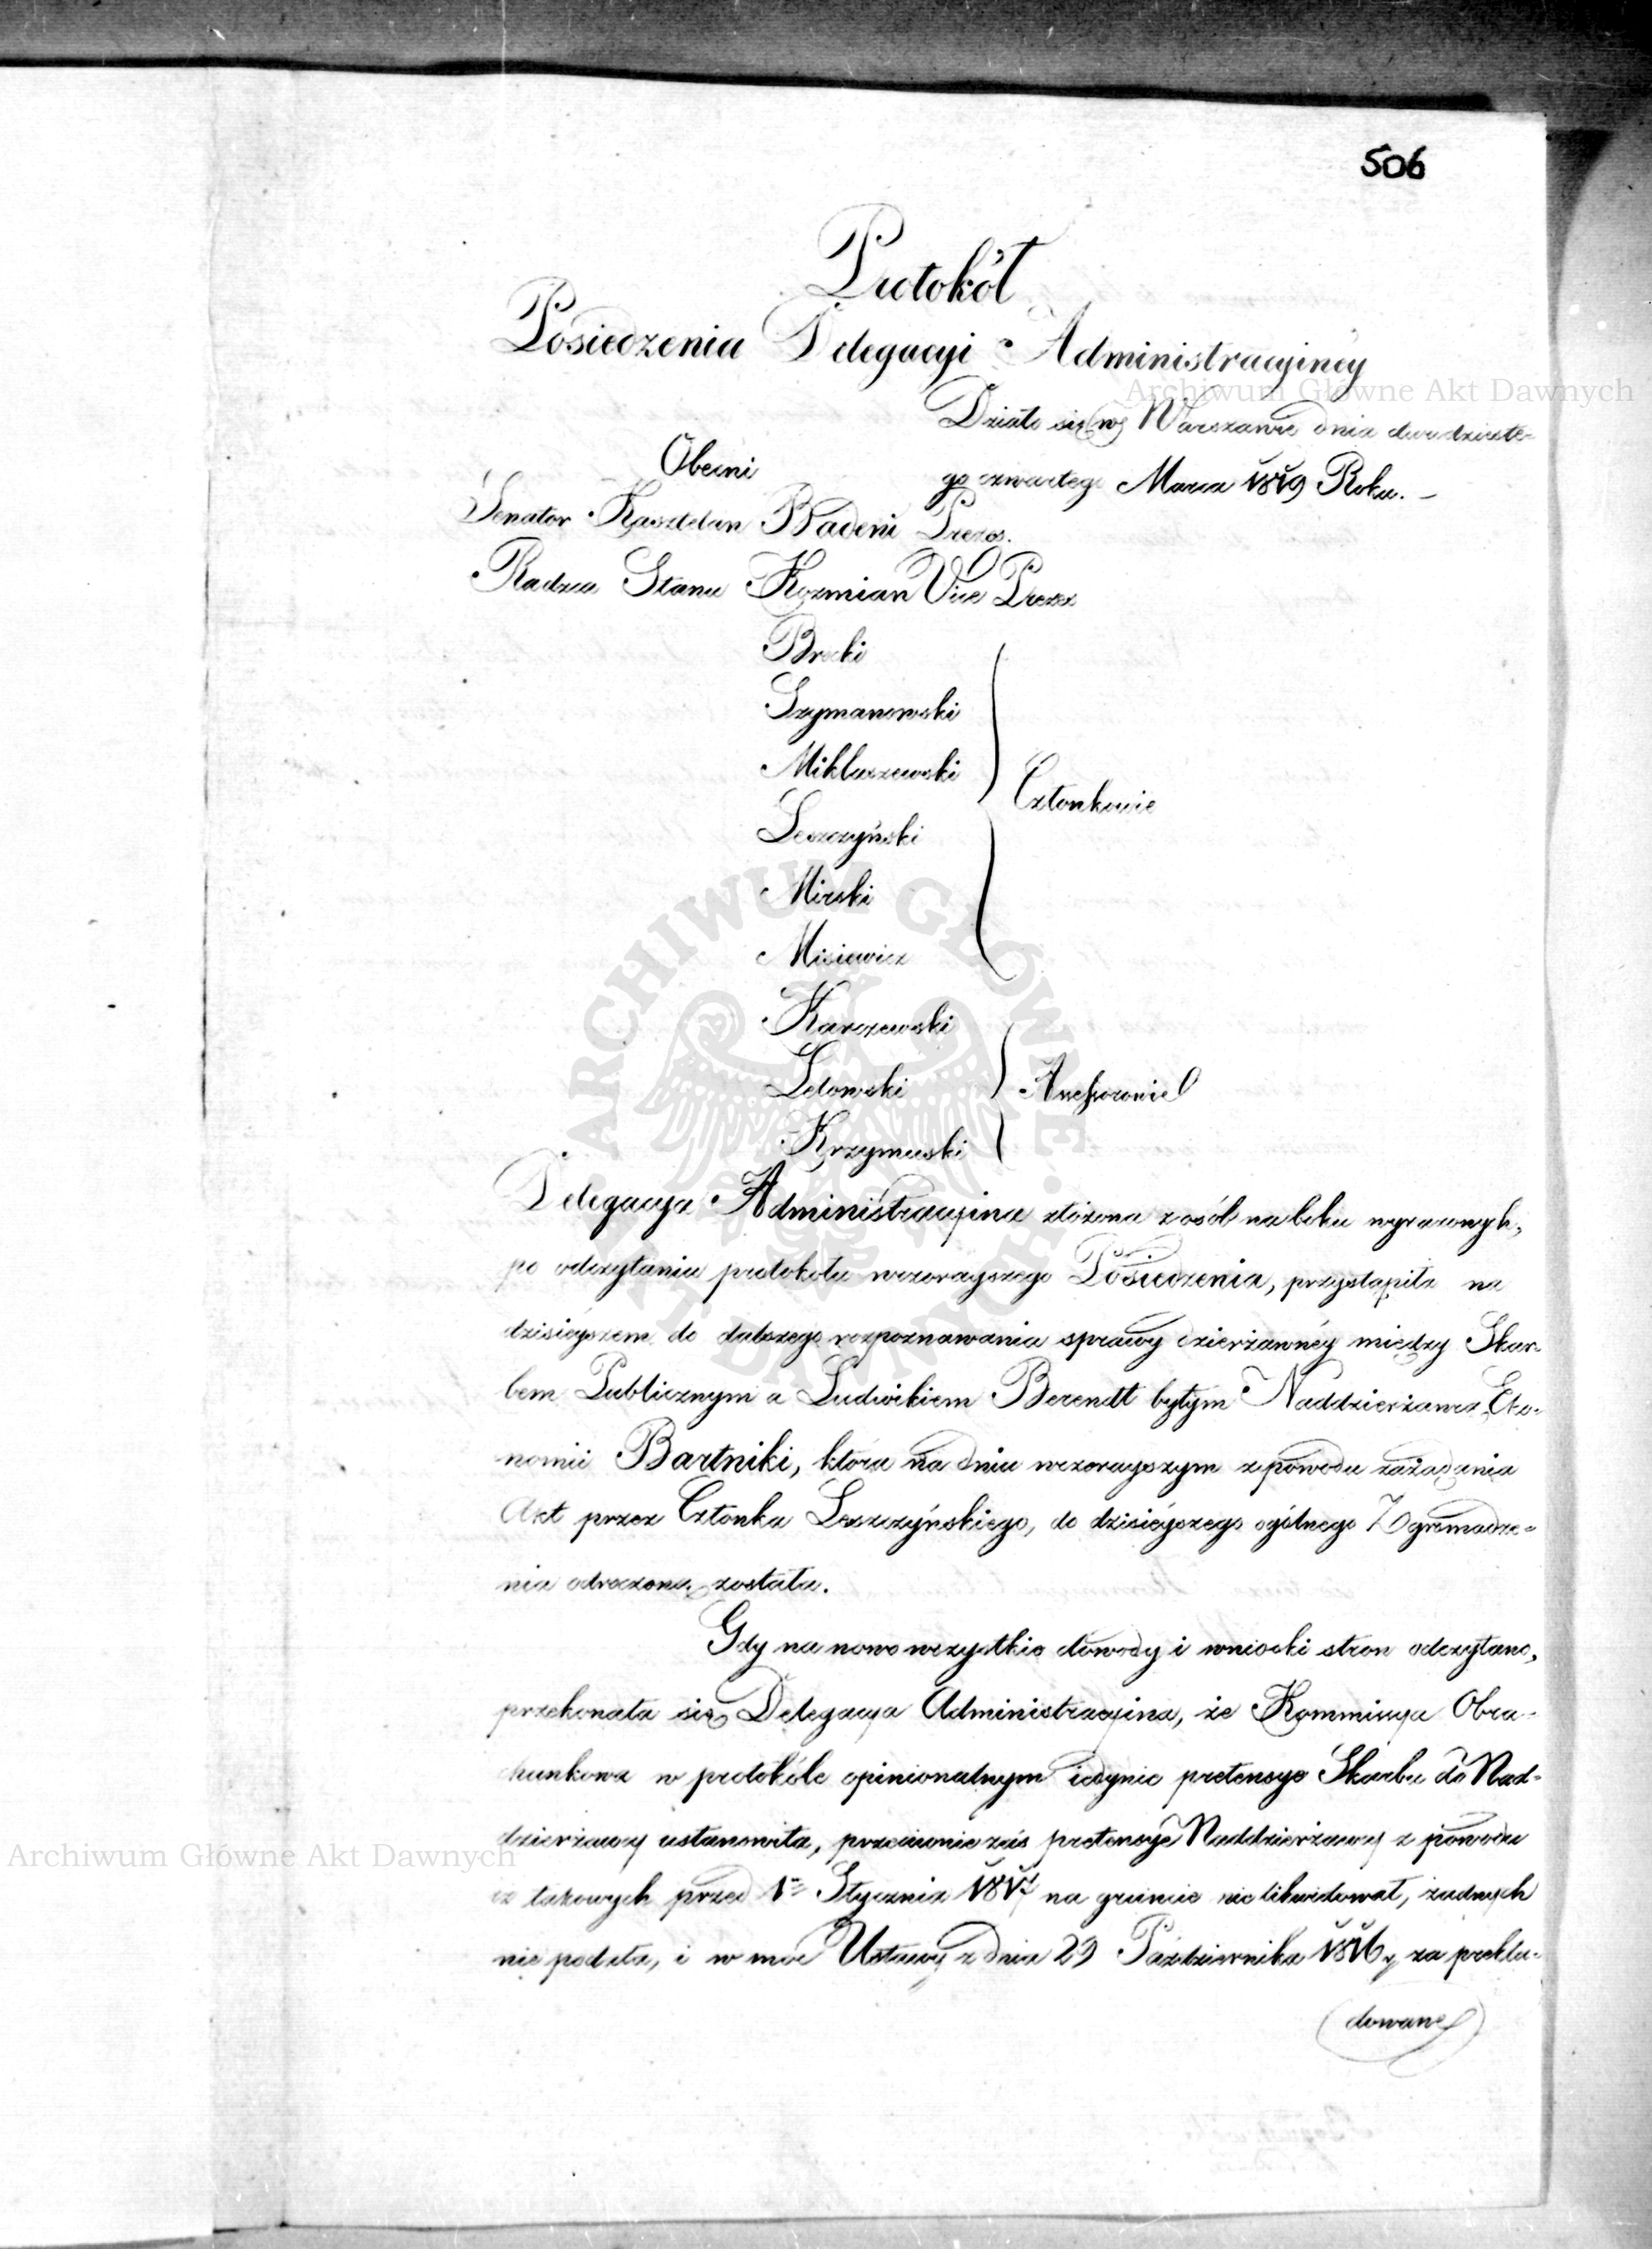 506
Protokół
Posiedzenia Delegacyi Administracyiney
Archiwum Główne Akt Dawnych
Działo się w Warszawie dnia dwudzieste-
Obecni
go czwartego Marca 1819 Roku. –
Senator Kasztelan Badeni Prezes.
Radzca Stanu Kozmian Vice Prezes
Brocki
Szymanowski
Mikłaszewski
Członkowie
Leszczyński
Mirski
Misiewicz
Karczewski
Letowski
Krzymuski
ARCHIWUM GŁÓWNE AKT DAWNYCH
Delegacya Administracyina złożona z osób na boku wyrażonych,
po odczytaniu protokołu wczorayszego Posiedzenia, przystąpiła na
dzisieyszem do dalszego rozpoznawania sprawy dzierżawnéy między Skar-
bem Publicznym a Ludwikiem Berendt byłym Naddzierżawcą Eko-
nomii Bartniki, która na dniu wczorayszym z powodu zażądania
Akt przez Członka Leszczyńskiego, do dzisiéyszego ogólnego Zgromadze-
nia odroczona została.
Gdy na nowo wszystkie dowody i wnioski stron odczytano,
przekonała się Delegacya Administracyina, że Kommissya Obra-
chunkowa w protokóle opinionalnym iedynie pretensye Skarbu do Nad-
dzierżawcy ustanowiła, przeciwnie zaś pretensye Naddzierżawcy z powodu
iż takowych przed 1m Stycznia 1817 na gruncie nie likwidował, żadnych
Archiwum Główne Akt Dawnych
nie podała, i w moc Ustawy z dnia 29 Października 1816 r. za preklu-
dowane